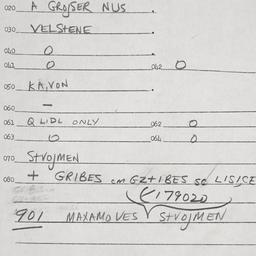 020 A GROßER NUS .
030 VELSTENE .
040 O .
041 O 042 O
050 KA, VON .
060 —
061 Q LIDL ONLY 062 O
063 O 064 O
070 STVOJMEN
080 + GRIBES cm GZ+IBES se LISICE
179020
901 MAXAMOVES STVOJMEN